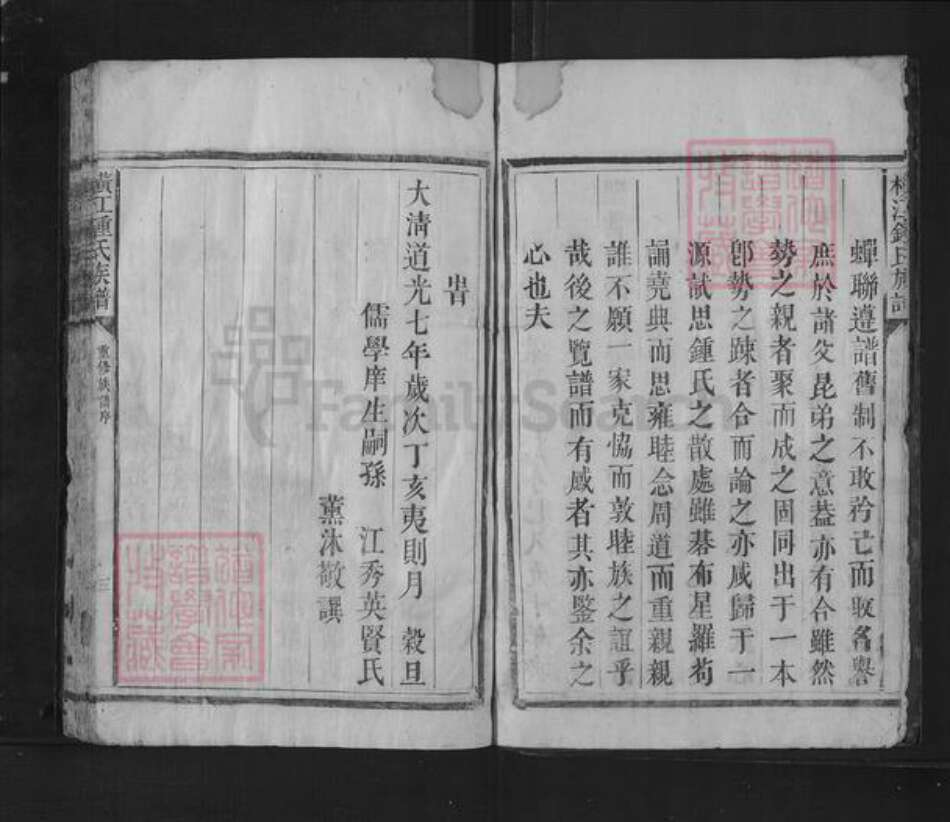 蟬聯遵譜舊制不敢矜亡而取名譽
庶於諸父昆弟之意葢亦有合雖然
勢之親者聚而成之固同出于一本
卽勢之踈者合而論之亦咸歸于一
源試思鍾氏之散處雖碁布星羅茍
誦堯典而思雍睦念周道而重親親
誰不願一家克恊而敦睦族之誼乎
哉後之覽譜而有感者其亦鑒余之
心也夫
旹
大清道光七年歲次丁亥夷則月 穀旦
儒學庠生嗣孫 江秀英賢氏
薰沐敬譔
橫江鍾氏族譜
重修族譜序
三
FamilySearch